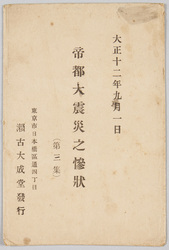 大正十二年九月一日
帝都大震災之慘狀
(第三集)
東京市日本橋區通四丁目
瀕古大成堂發行